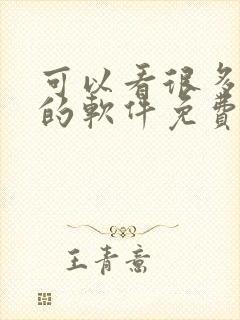 可以看很多
的軟件免費
王青意